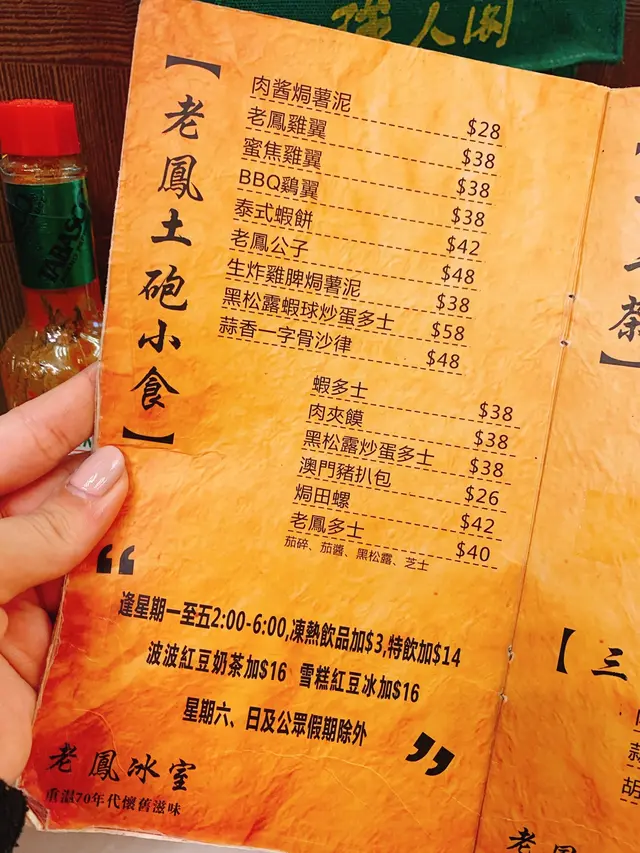 強人閣
TABASCO
【老鳳土砲小食】
肉醬焗薯泥 $28
老鳳雞翼 $38
蜜焦雞翼 $38
BBQ鷄翼 $38
泰式蝦餅 $42
老鳳公子 $48
生炸雞脾焗薯泥 $38
黑松露蝦球炒蛋多士 $58
蒜香一字骨沙律 $48
蝦多士 $38
肉夾饃 $38
黑松露炒蛋多士 $38
澳門豬扒包 $26
焗田螺 $42
老鳳多士 $40
茄碎、茄醬、黑松露、芝士
“
逢星期一至五2:00-6:00,凍熱飲品加$3,特飲加$14
波波紅豆奶茶加$16 雪糕紅豆冰加$16
星期六、日及公眾假期除外
”
老鳳冰室
重溫70年代懷舊滋味
【三
蒜
胡
老